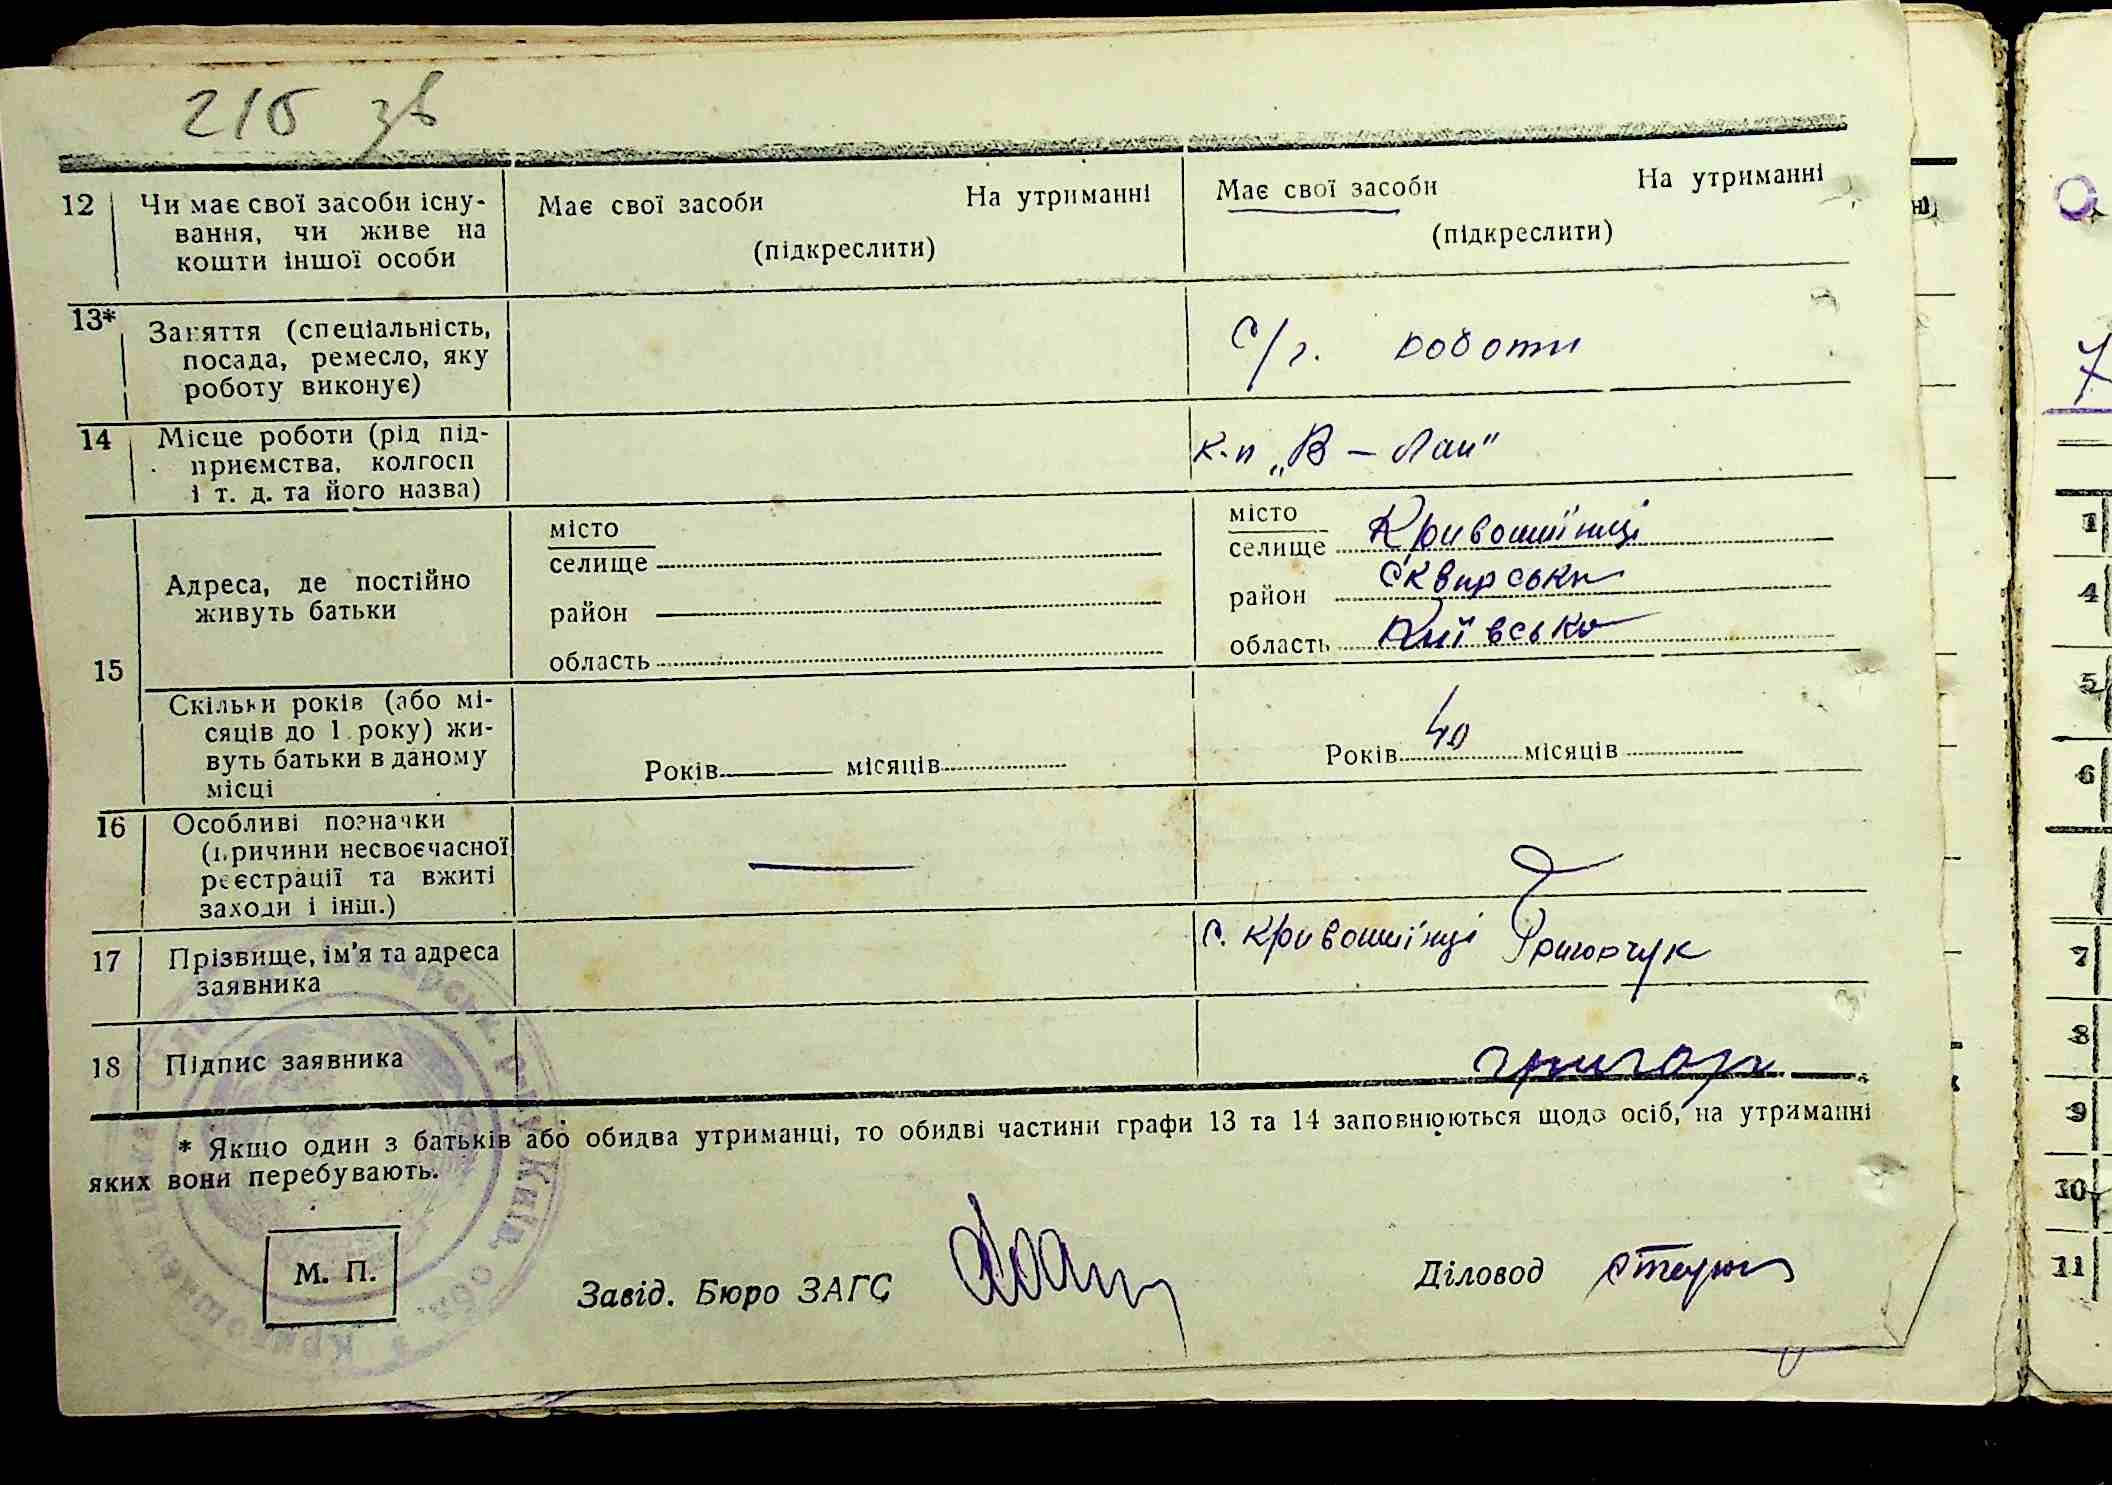 216 зв
12 Чи має свої засоби існу-
вання, чи живе на
кошти іншої особи
Має свої засоби На утриманні
(підкреслити)
Має свої засоби На утриманні
(підкреслити)
13* Заняття (спеціальність,
посада, ремесло, яку
роботу виконує)
С/г. роботи
14 Місце роботи (рід під-
приємства, колгосп
і т. д. та його назва)
к-п „В – Лан"
15
Адреса, де постійно
живуть батьки
місто
селище
район
область
місто
селище Кривошиїнці
район Сквирськи
область Київсько
Скільки років (або мі-
сяців до 1 року) жи-
вуть батьки в даному
місці
Років місяців
Років 40 місяців
16 Особливі позначки
(причини несвоєчасної
реєстрації та вжиті
заходи і інш.)
17 Прізвище, ім'я та адреса
заявника
с. Кривошиїнці Григорчук
18 Підпис заявника
григорч
* Якщо один з батьків або обидва утриманці, то обидві частини графи 13 та 14 заповнюються щодо осіб, на утриманні
яких вони перебувають.
М. П.
Завід. Бюро ЗАГС
Діловод
1
4
5
6
7
8
9
10
11